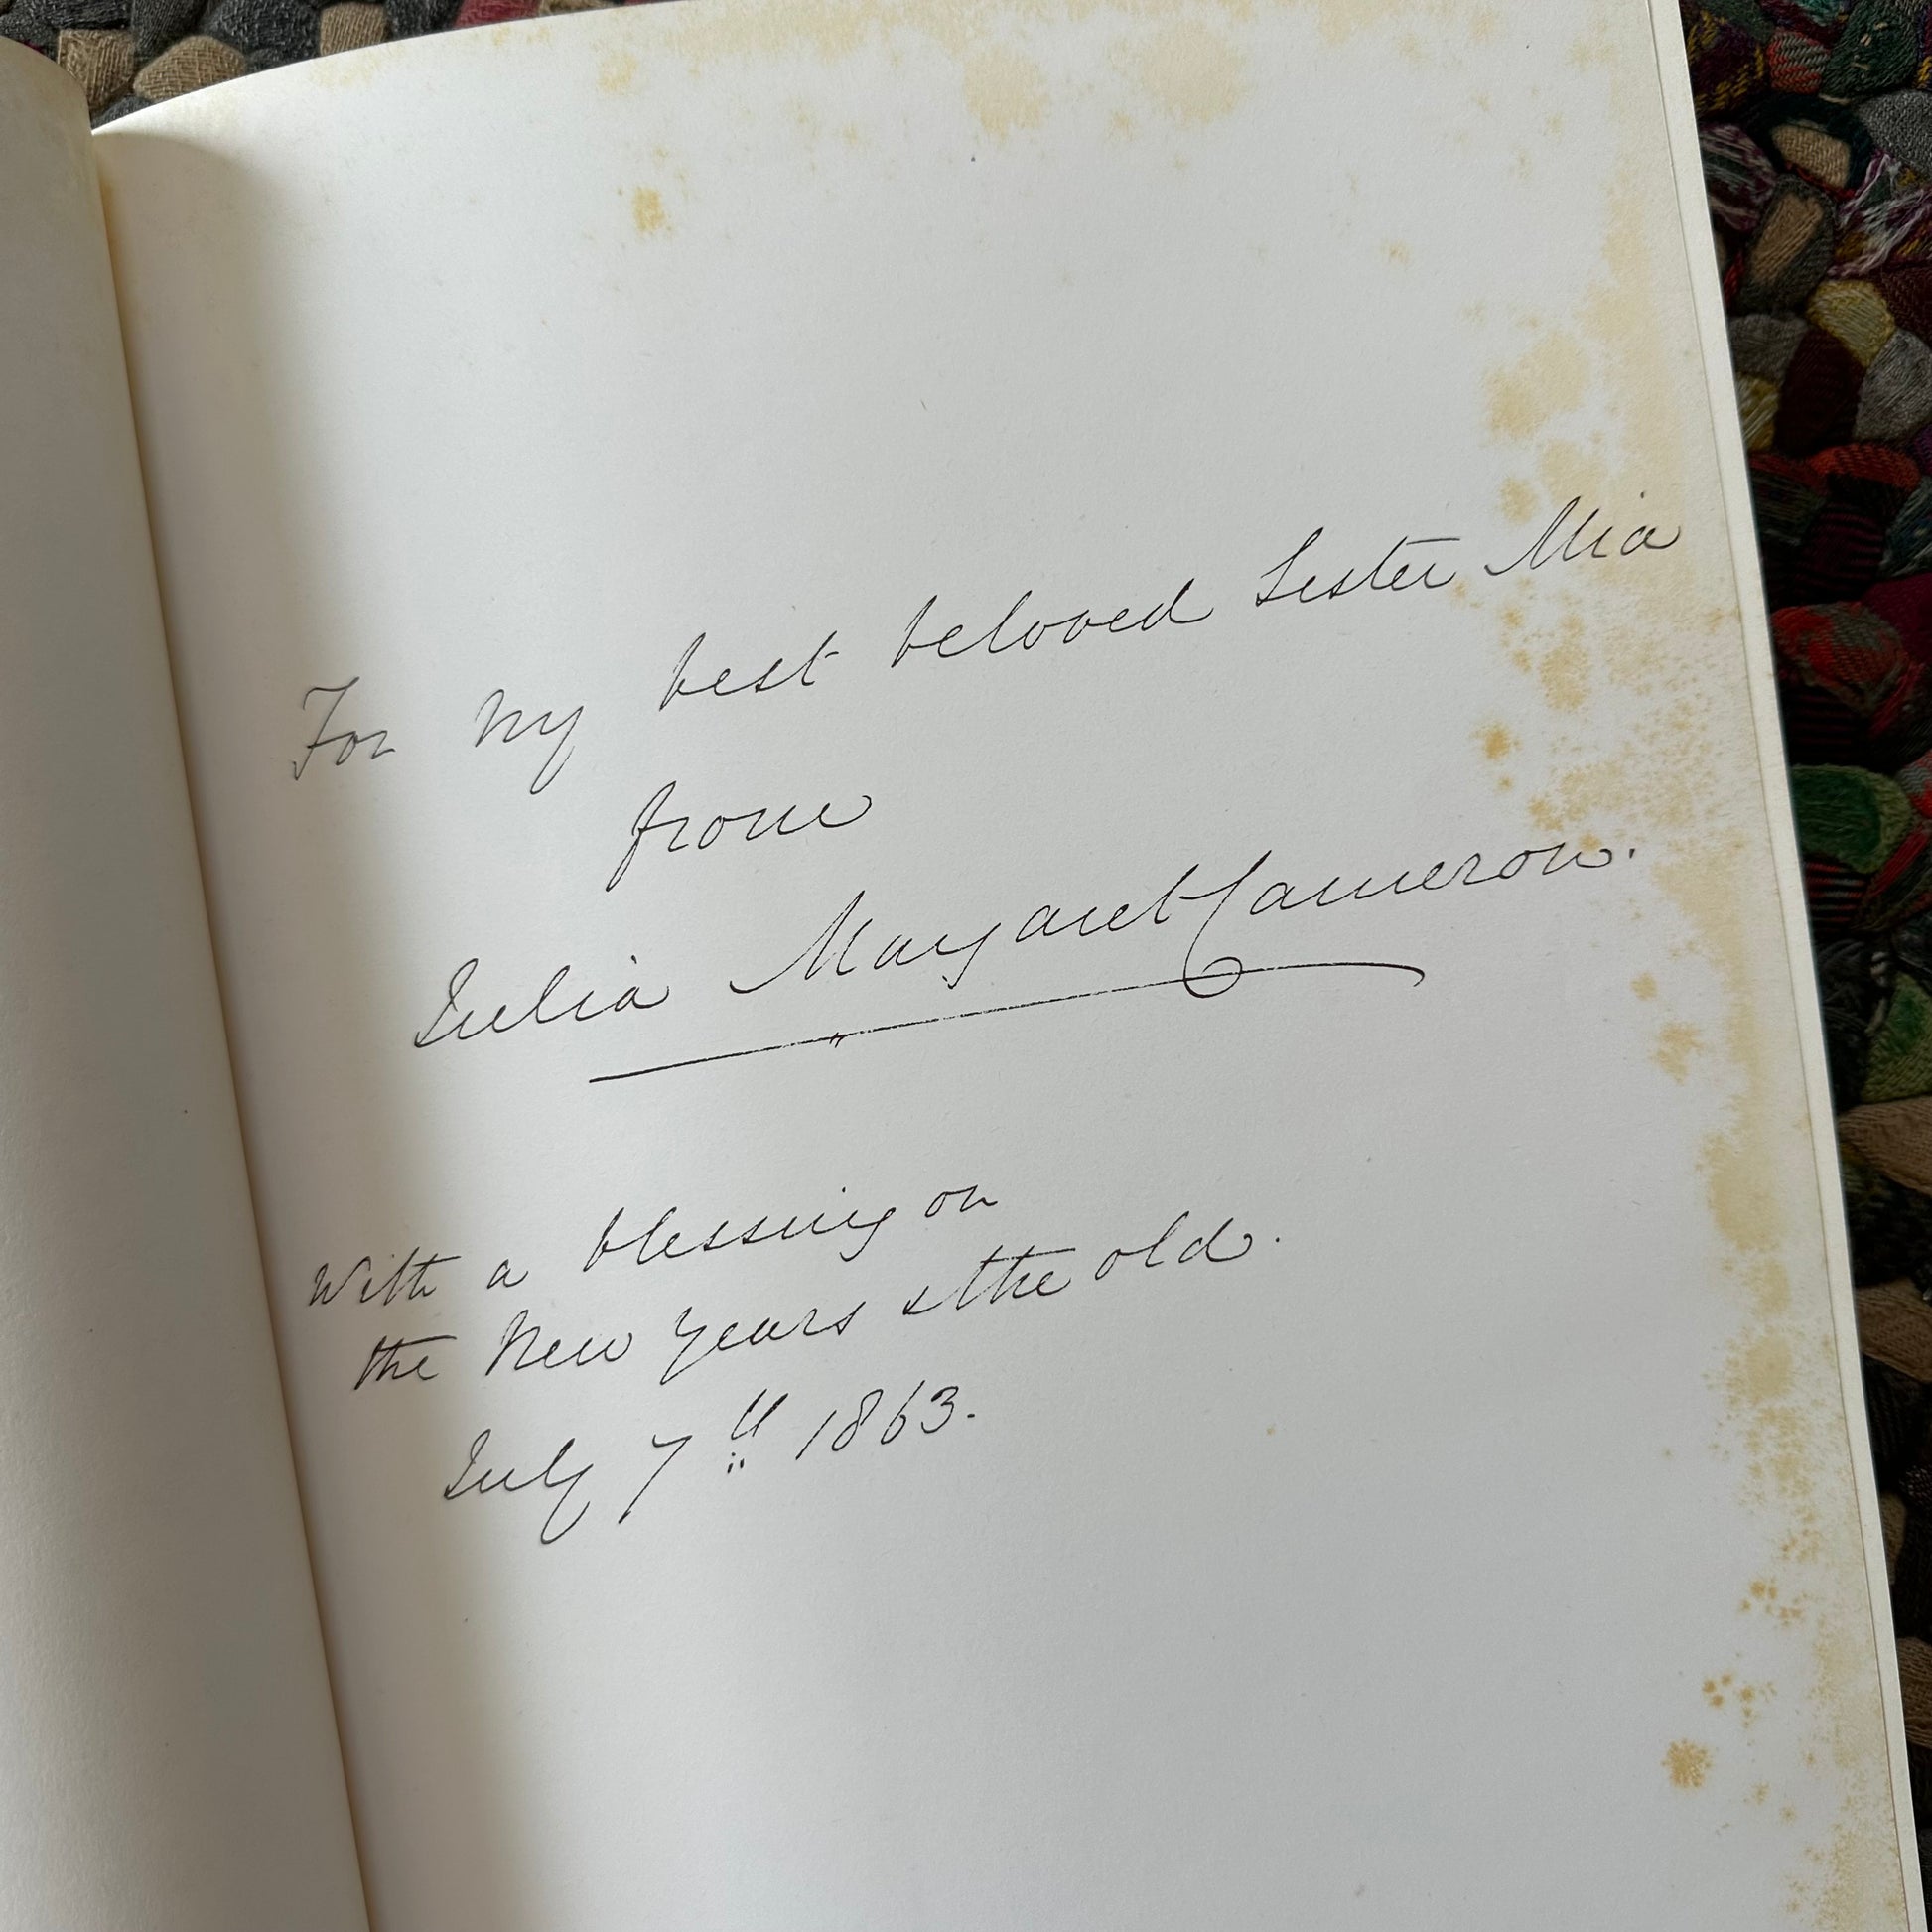 For my best beloved Sister Mia
from
Julia Margaret Cameron.
With a blessing on
the New Years & the old.
July 7th 1863.